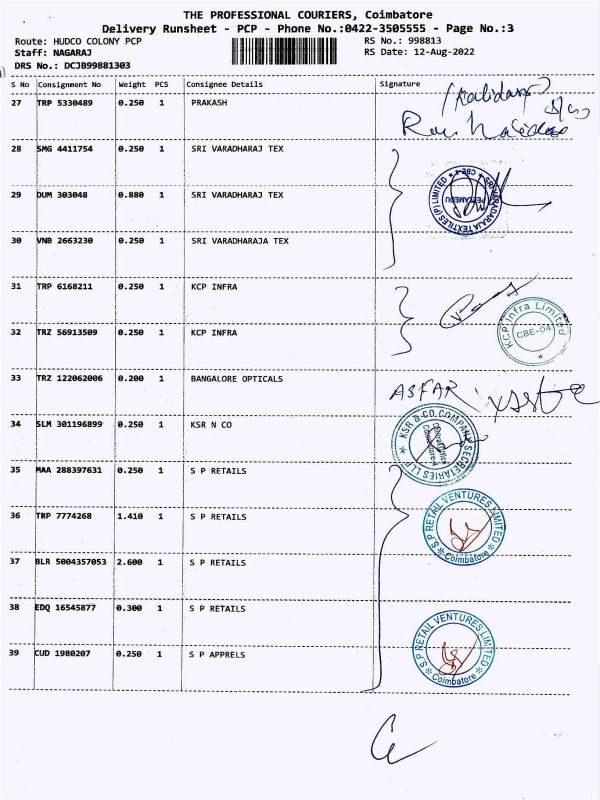 THE PROFESSIONAL COURIERS, Coimbatore
Delivery Runsheet - PCP - Phone No.:0422-3505555 - Page No.:3
Route: HUDCO COLONY PCP RS No.: 998813
Staff: NAGARAJ RS Date: 12-Aug-2022
DRS No.: DCJB99881303
S No Consignment No Weight PCS Consignee Details Signature
27 TRP 5330489 0.250 1 PRAKASH
(Kalidass)
28 SMG 4411754 0.250 1 SRI VARADHARAJ TEX
29 DUM 303048 0.880 1 SRI VARADHARAJ TEX
SRI VARADARAJA TEXTILES (P) LIMITED ★ CBE-4 ★
PEELAMEDU
30 VNB 2663230 0.250 1 SRI VARADHARAJA TEX
31 TRP 6168211 0.250 1 KCP INFRA
KCP Infra Limited
CBE-04
32 TRZ 56913509 0.250 1 KCP INFRA
33 TRZ 122062006 0.200 1 BANGALORE OPTICALS
ASFAR
34 SLM 301196899 0.250 1 KSR N CO
KSR & CO COMPANY SECRETARIES LLP
35 MAA 288397631 0.250 1 S P RETAILS
36 TRP 7774268 1.410 1 S P RETAILS
S.P RETAIL VENTURES LIMITED
Coimbatore
37 BLR 5004357053 2.600 1 S P RETAILS
38 EDQ 16545877 0.300 1 S P RETAILS
39 CUD 1980207 0.250 1 S P APPRELS
S.P RETAIL VENTURES LIMITED
Coimbatore